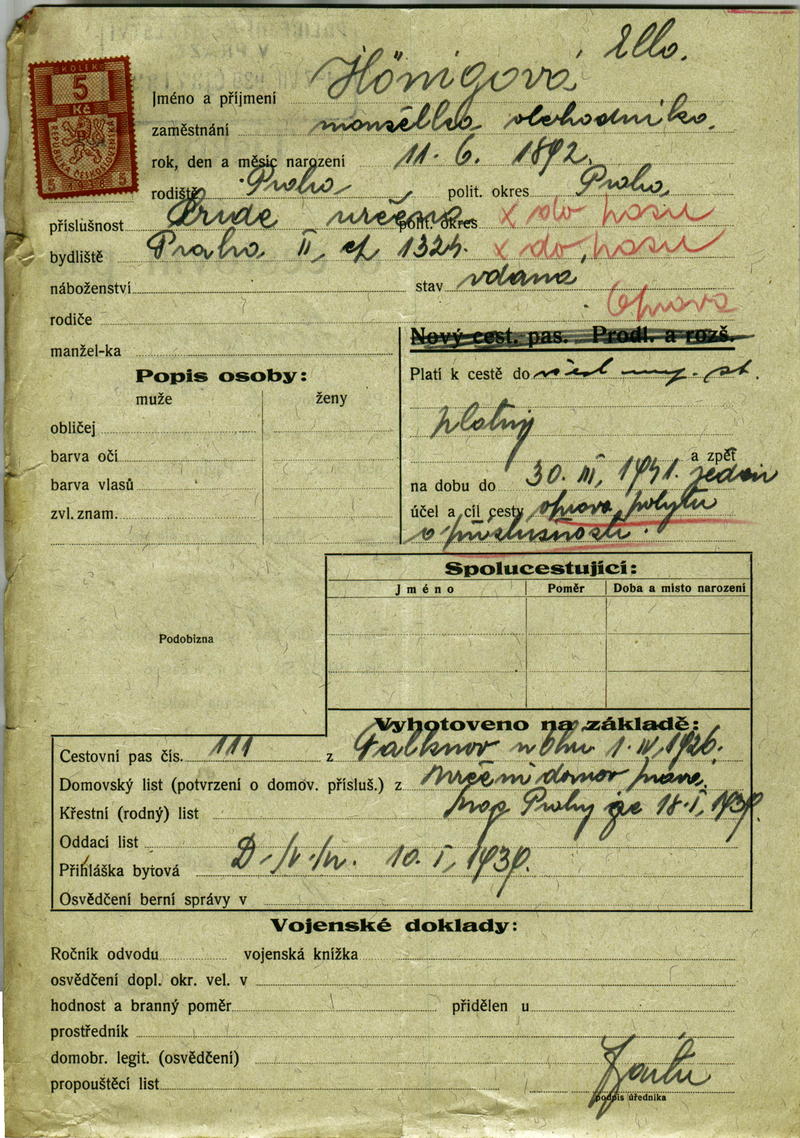 KOLEK
5
Kč
REPUBLIKA ČESKOSLOVENSKÁ
5 1938 5
Jméno a příjmení Hönigová Ella.
zaměstnání manželka obchodníka.
rok, den a měsíc narození 11. 6. 1892.
rodiště Praha polit. okres Praha
příslušnost Bude určena polit. okres x do pasu
bydliště Praha II, čp 1324. x do pasu
náboženství stav vdaná
rodiče Oprava
manžel-ka
Nový cest. pas. Prodl. a rozš.
Popis osoby:
muže ženy
Platí k cestě do
platný
obličej
barva očí
barva vlasů
zvl. znam.
a zpět
na dobu do 30. III. 1941. jeden
účel a cíl cesty oprava pobytu
a příslušnosti.
Spolucestující:
Jméno Poměr Doba a místo narození
Podobizna
Vyhotoveno na základě:
Cestovní pas čís. 111 z Falknov n Ohří 1. IV. 1926.
Domovský list (potvrzení o domov. přísluš.) z určení domov práva
Křestní (rodný) list mag Prahy ze 18. I. 1939.
Oddací list
Přihláška bytová 10. I. 1939.
Osvědčení berní správy v
Vojenské doklady:
Ročník odvodu vojenská knížka
osvědčení dopl. okr. vel. v
hodnost a branný poměr přidělen u
prostředník
domobr. legit. (osvědčení)
propouštěcí list
podpis úředníka